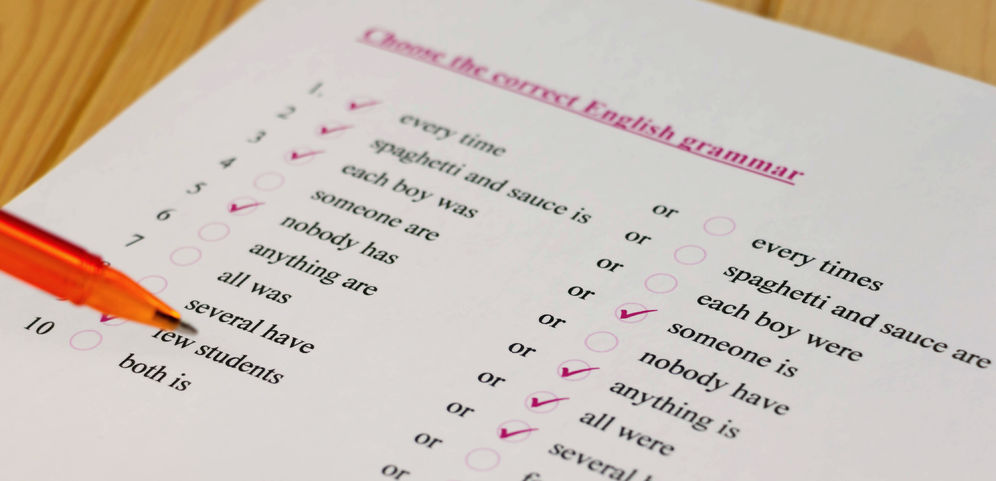 Choose the correct English grammar
1. every time or every times
2 spaghetti and sauce is or spaghetti and sauce are
3 each boy was or each boy were
4 someone are or someone is
5 nobody has or nobody have
6 anything are or anything is
7 all was or all were
several have or several
few students or
10 both is or